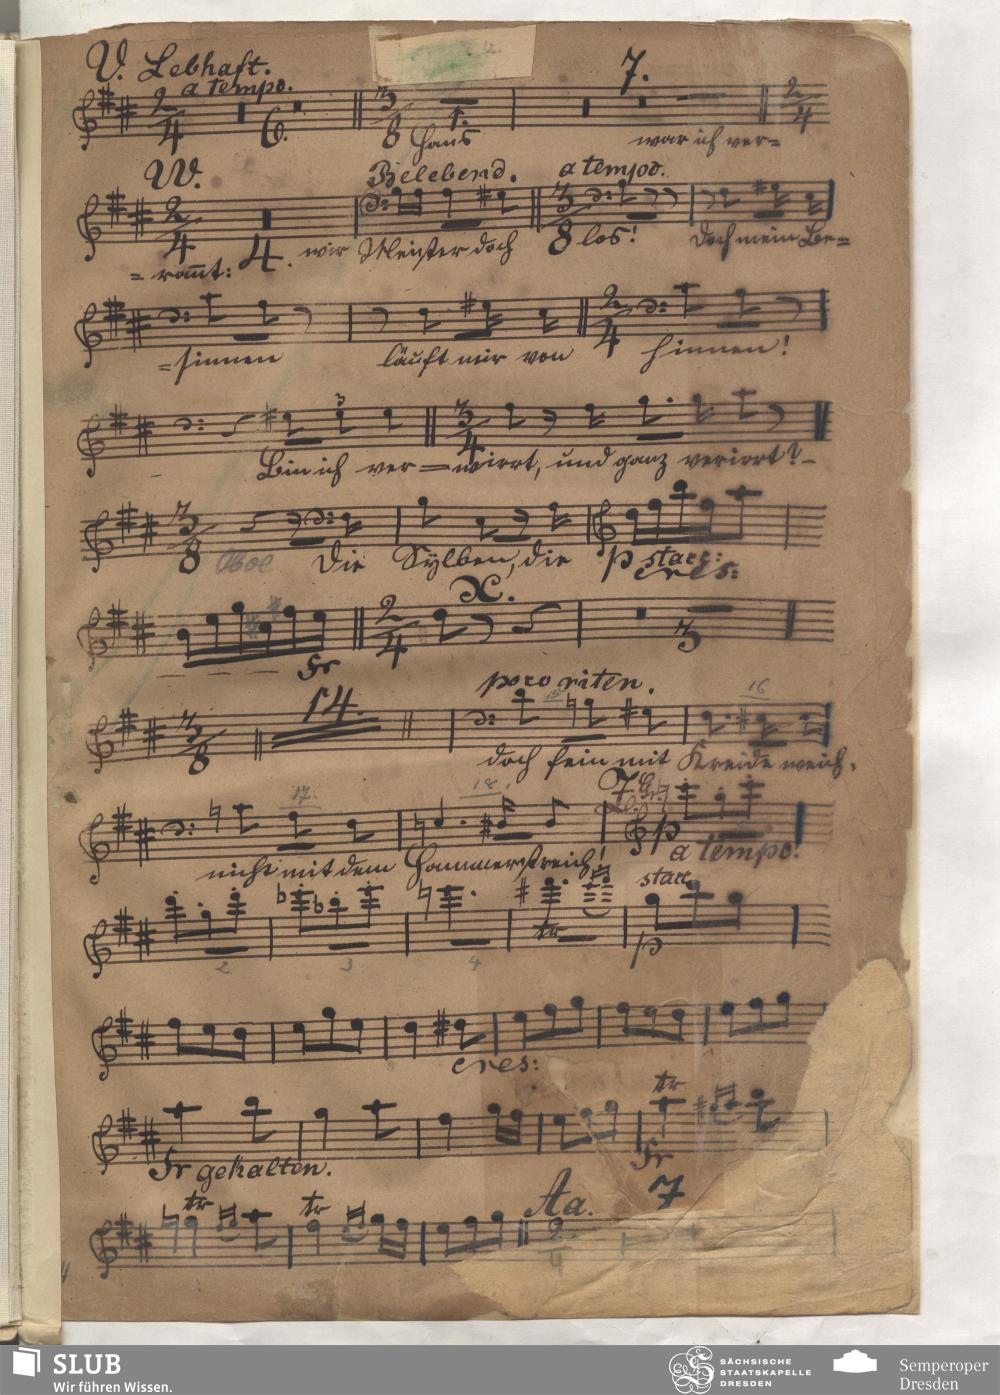 V. Lebhaft.
a tempo.
2/4 6. 3/8 1. 7. 2/4
Hans war ich ver=
W. Belebend. a tempo.
2/4 4. 3/8
=rannt: wir Meister doch los! Doch mein Be=
2/4
=sinnen läuft mir von hinnen!
3 3/4
Bin ich ver=wirrt, und ganz verirrt?
3/8 Oboe Die Sylben, die p stacc:
cres:
X.
2/4 3
fr
poco riten.
3/8 14. 16
doch fein mit Kreide weich,
17. 18. Z.
nicht mit dem Hammerstreich! p a tempo.
stacc.
tr p
2 3 4
cres:
tr
fr gehalten. fr
tr tr Aa. 7
2/4
SLUB
Wir führen Wissen.
SÄCHSISCHE
STAATSKAPELLE
DRESDEN
Semperoper
Dresden